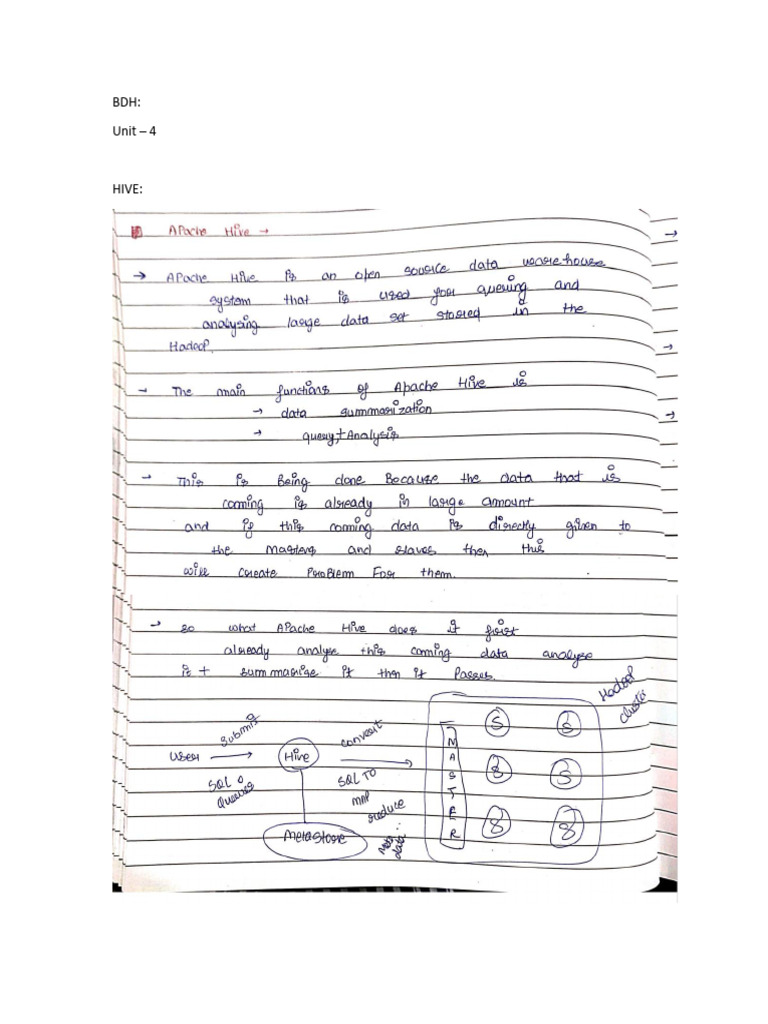 BDH:
Unit – 4
HIVE:
Apache Hive →
→ Apache Hive is an open source data warehouse
system that is used for quering and
analysing large data set stored in the
Hadoop.
→ The main functions of Apache Hive is
→ data summarization
→ query + Analysis
→ This is Being done Because the data that is
coming is already in large amount
and if this coming data is directly given to
the Masters and slaves then this
will create Problem For them.
→ so what Apache Hive does it first
already analyse this coming data analyse
it + summarize it then it Passes.
Hadoop
cluster
User
submit
SQL
Queries
Hive
convert
SQL TO
MAP
reduce
Metastore
Meta
data
MASTER
S S
S S
S S